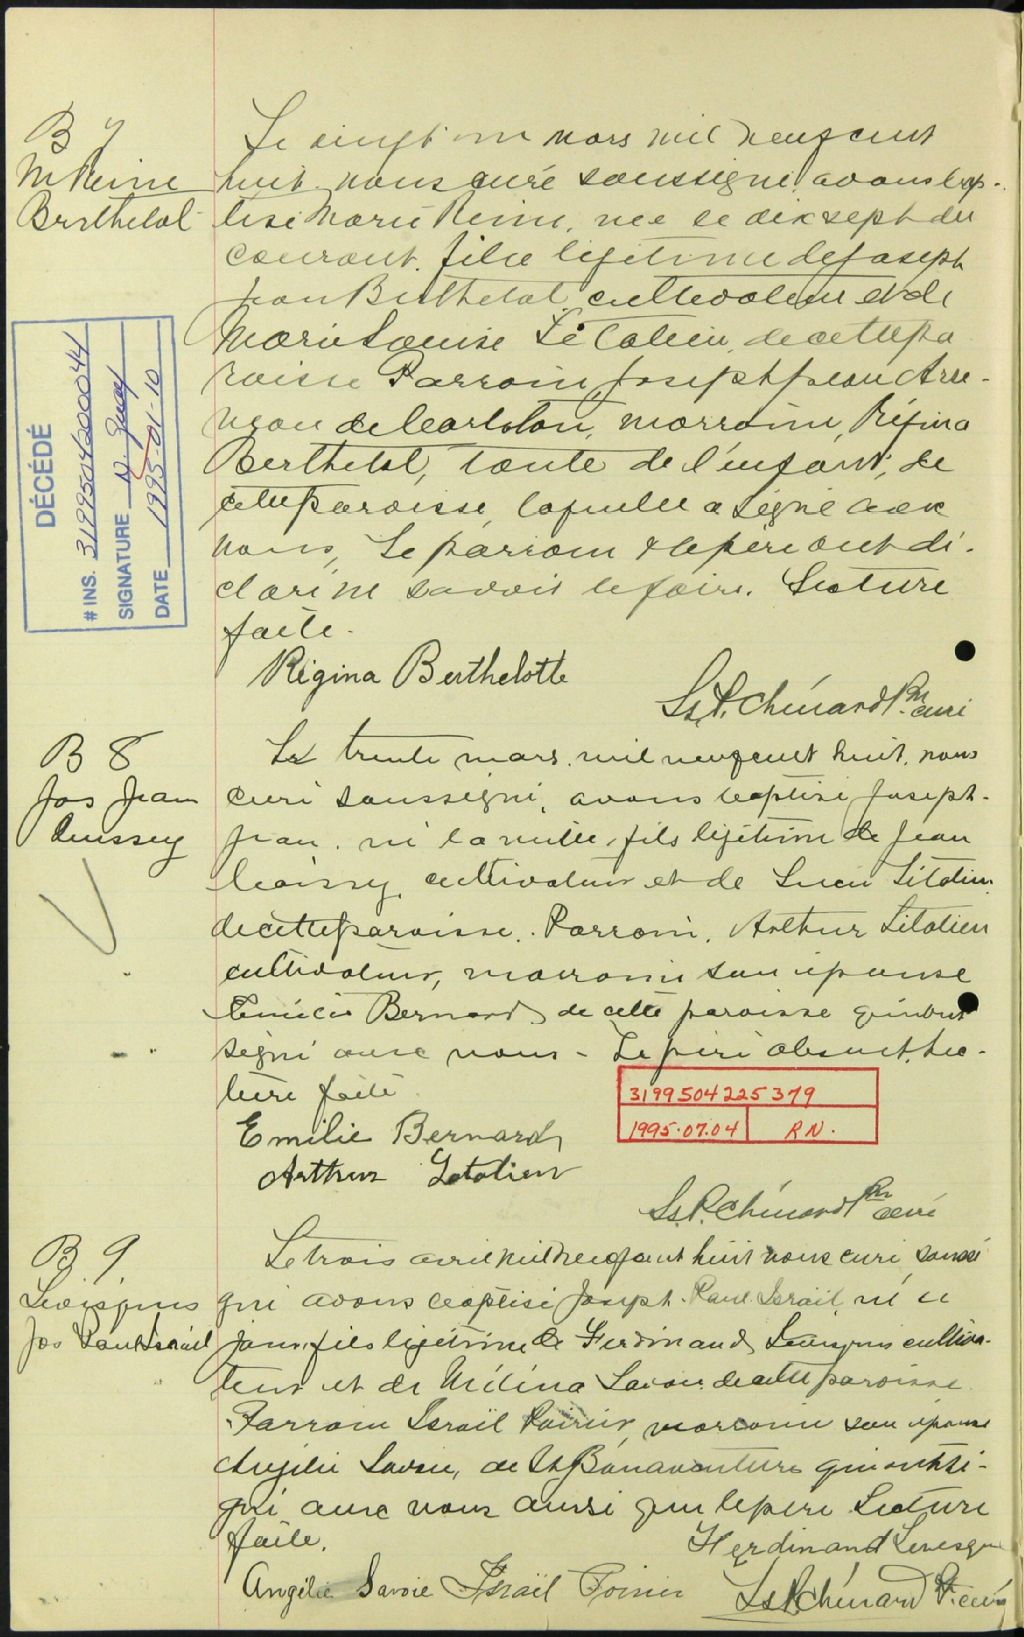 B 7
M Reine
Berthelot
Le vingt un mars mil neuf cent
huit nous curé soussigné avons bap-
tisé Marie Reine, née le dix sept du
courant, fille légitime de Joseph
Jean Berthelot cultivateur et de
Marie Louise Létalien, de cette pa
roisse Parrain, Joseph Jean Arse-
neau de Carleton, marraine, Régina
Berthelot, tante de l'enfant, de
cette paroisse, laquelle a signé avec
nous, Le parrain & le père ont dé-
claré ne savoir le faire. Lecture
faite.
Régina Berthelotte
Ls. P. Chénard Ptre curé
DÉCÉDÉ
# INS. 3199504200044
SIGNATURE
DATE 1995-01-10
B 8
Jos Jean
Cuissey
Le trente mars, mil neuf cent huit, nous
curé soussigné, avons baptisé Joseph-
Jean, né la veille, fils légitime de Jean
cultivateur et de Lucie Létalien
de cette paroisse. Parrain, Arthur Létalien
cultivateur, marraine son épouse
Émilie Bernard de cette paroisse qui ont
signé avec nous - Le père absent, Lec-
ture faite
3199504225379
1995.07.04 R.N.
Emilie Bernard
Arthur Letalien
Ls. P. Chénard Ptre curé
B. 9.
Levesques
Jos Paul Israël
Le trois avril mil neuf cent huit nous curé soussi
gné avons baptisé Joseph Paul Israël, né ce
jour, fils légitime de Ferdinand Levesques cultiva-
teur et de Mélina Savoie de cette paroisse.
Parrain Israël Poirier, marraine son épouse
Angélie Savoie, de St Bonaventure qui ont si-
gné avec nous aussi que le père Lecture
faite.
Ferdinand Levesque
Angélie Savoie Israël Poirier Ls P. Chénard Pt. curé